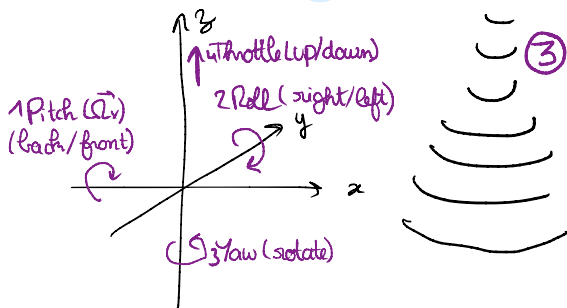 z
4Throttle(up/down)
3
2Roll(right/left)
y
1Pitch(Ωv)
(back/front)
x
3Yaw(rotate)